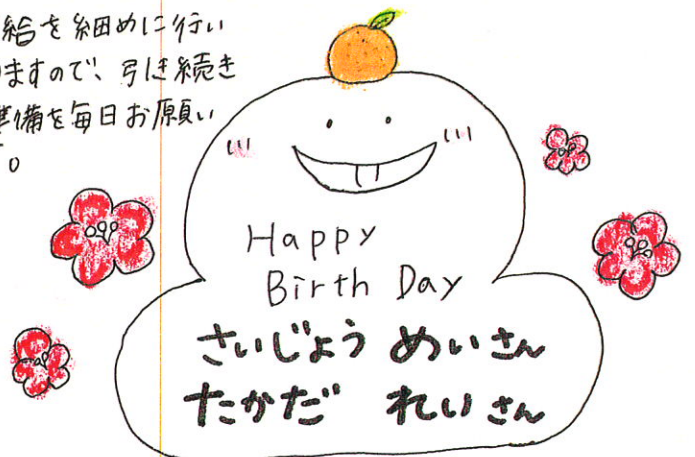 給を細めに行い
ますので、引き続き
準備を毎日お願い
。
Happy
Birth Day
さいじょう めいさん
たかだ れいさん